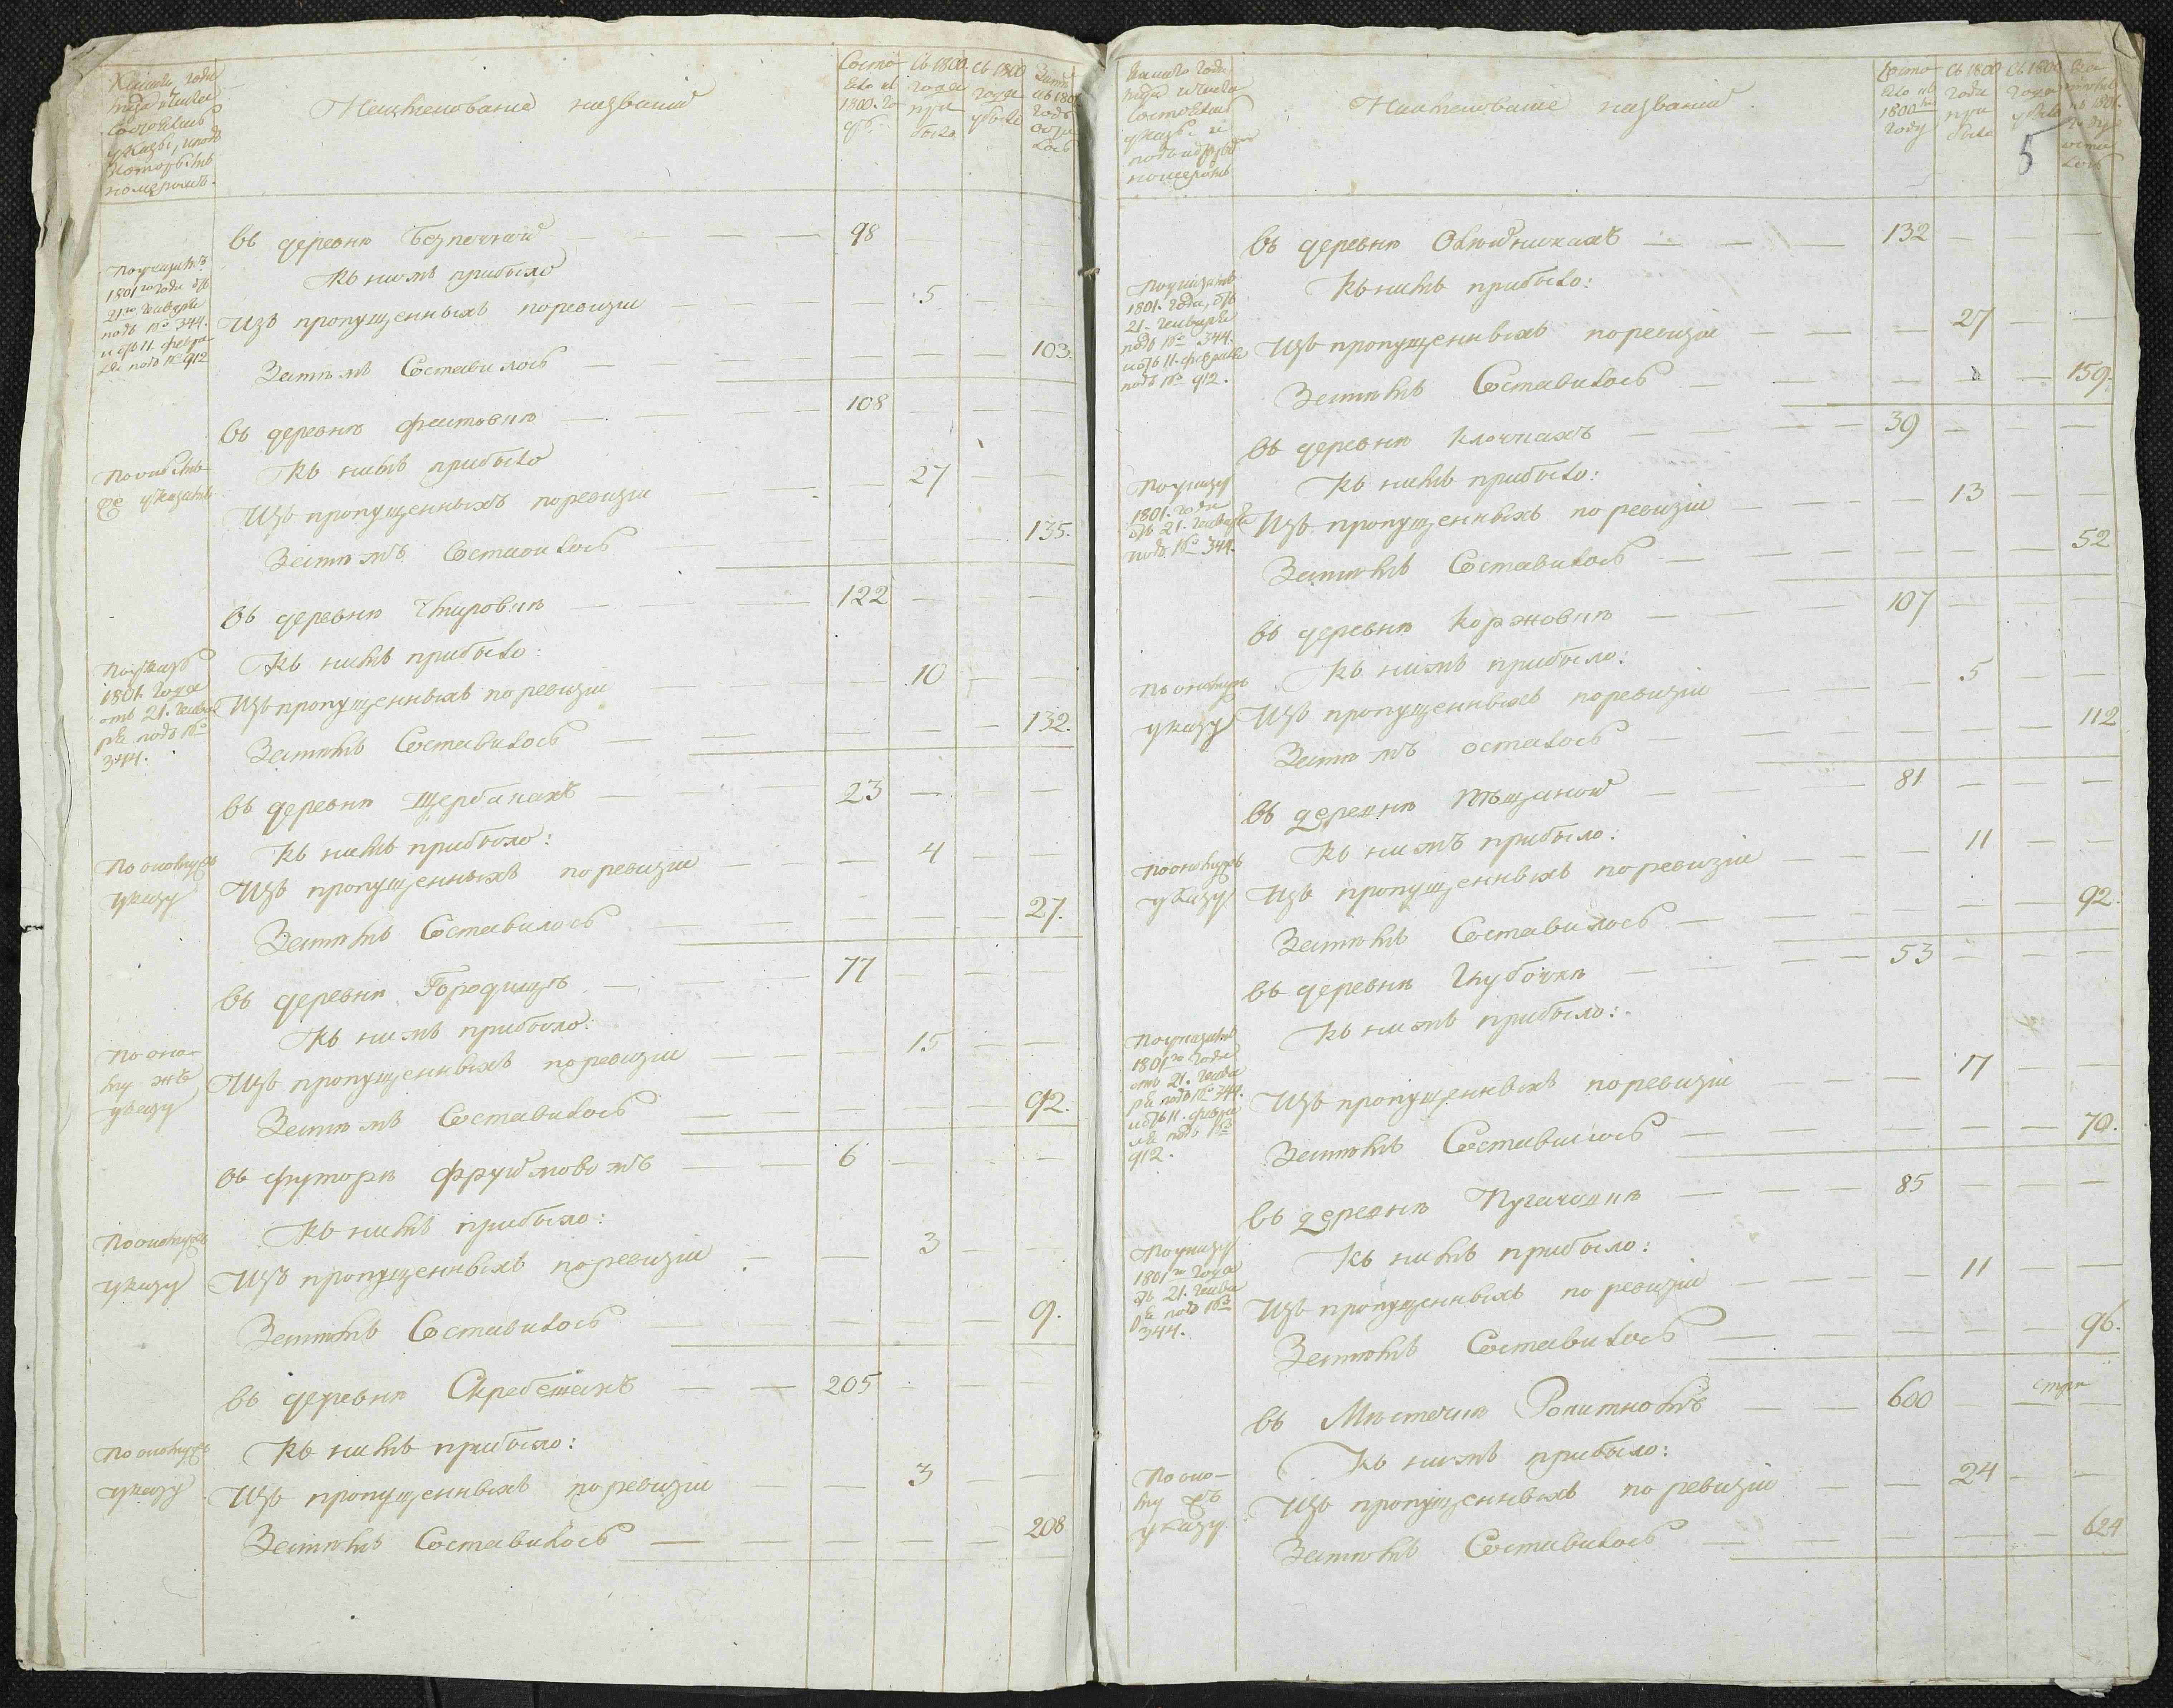 Наименование названий
Состо
яло въ
1800. го
Съ 1800.
года
при
было
Съ 1800
года
убыло
Затѣмъ
въ 1801
годъ
оста
лось
номеромъ.
въ деревнѣ Безпечной — 98
По указамъ
1801го года отъ
21го Генваря
подъ № 344.
и отъ 11. февра
ля подъ № 912
Къ нимъ прибыло
Изъ пропущенныхъ по ревизіи — 5
Затѣмъ Составилось — 103.
въ деревнѣ — 108
По онымъ
же указамъ
Къ нимъ прибыло
Изъ пропущенныхъ по ревизіи — 27
Затѣмъ Составилось — 135.
въ деревнѣ — 122
По указу
1801. года
отъ 21. Генва
ря подъ №
344.
Къ нимъ прибыло:
Изъ пропущенныхъ по ревизіи — 10
Затѣмъ Составилось — 132.
въ деревнѣ Щербанахъ — 23
По ономужъ
указу
Къ нимъ прибыло:
Изъ пропущенныхъ по ревизіи — 4
Затѣмъ Составилось — 27.
въ деревнѣ Городищѣ — 77
По оно-
му жъ
указу
Къ нимъ прибыло:
Изъ пропущенныхъ по ревизіи — 15
Затѣмъ Составилось — 92.
въ футорѣ — 6
По ономужъ
указу
Къ нимъ прибыло:
Изъ пропущенныхъ по ревизіи — 3
Затѣмъ Составилось — 9.
въ деревнѣ — 205
По ономужъ
указу
Къ нимъ прибыло:
Изъ пропущенныхъ по ревизіи — 3
Затѣмъ Составилось — 208
Наименование названий
Состо
яло въ
1800мъ
году
Съ 1800
года
при
было
Съ 1800
года
убыло
въ 1801.
году
оста
лось
5
номеромъ
въ деревнѣ — 132
По указамъ
1801. года, отъ
21. Генваря
подъ № 344.
и отъ 11. февраля
подъ № 912.
Къ нимъ прибыло:
Изъ пропущенныхъ по ревизіи — 27
Затѣмъ Составилось — 159.
въ деревнѣ Клочкахъ — 39
По указу
1801. года
отъ 21. Генваря
подъ № 344.
Къ нимъ прибыло:
Изъ пропущенныхъ по ревизіи — 13
Затѣмъ Составилось — 52
въ деревнѣ Коржовкѣ — 107
По ономужъ
указу
Къ нимъ прибыло:
Изъ пропущенныхъ по ревизіи — 5
Затѣмъ осталось — 112
въ деревнѣ — 81
По ономужъ
указу
Къ нимъ прибыло:
Изъ пропущенныхъ по ревизіи — 11
Затѣмъ Составилось — 92.
въ деревнѣ Глубочкѣ — 53
По указамъ
1801го года
отъ 21. Генва
ря подъ № 344.
и отъ 11. февра
ля подъ №
912.
Къ нимъ прибыло:
Изъ пропущенныхъ по ревизіи — 17
Затѣмъ Составилось — 70.
въ деревнѣ Пугачовкѣ — 85
По указу
1801го года
отъ 21. Генва
ря подъ №
344.
Къ нимъ прибыло:
Изъ пропущенныхъ по ревизіи — 11
Затѣмъ Составилось — 96.
въ Мѣстечкѣ — 600
По оно-
му жъ
указу
Къ нимъ прибыло:
Изъ пропущенныхъ по ревизіи — 24
Затѣмъ Составилось — 624